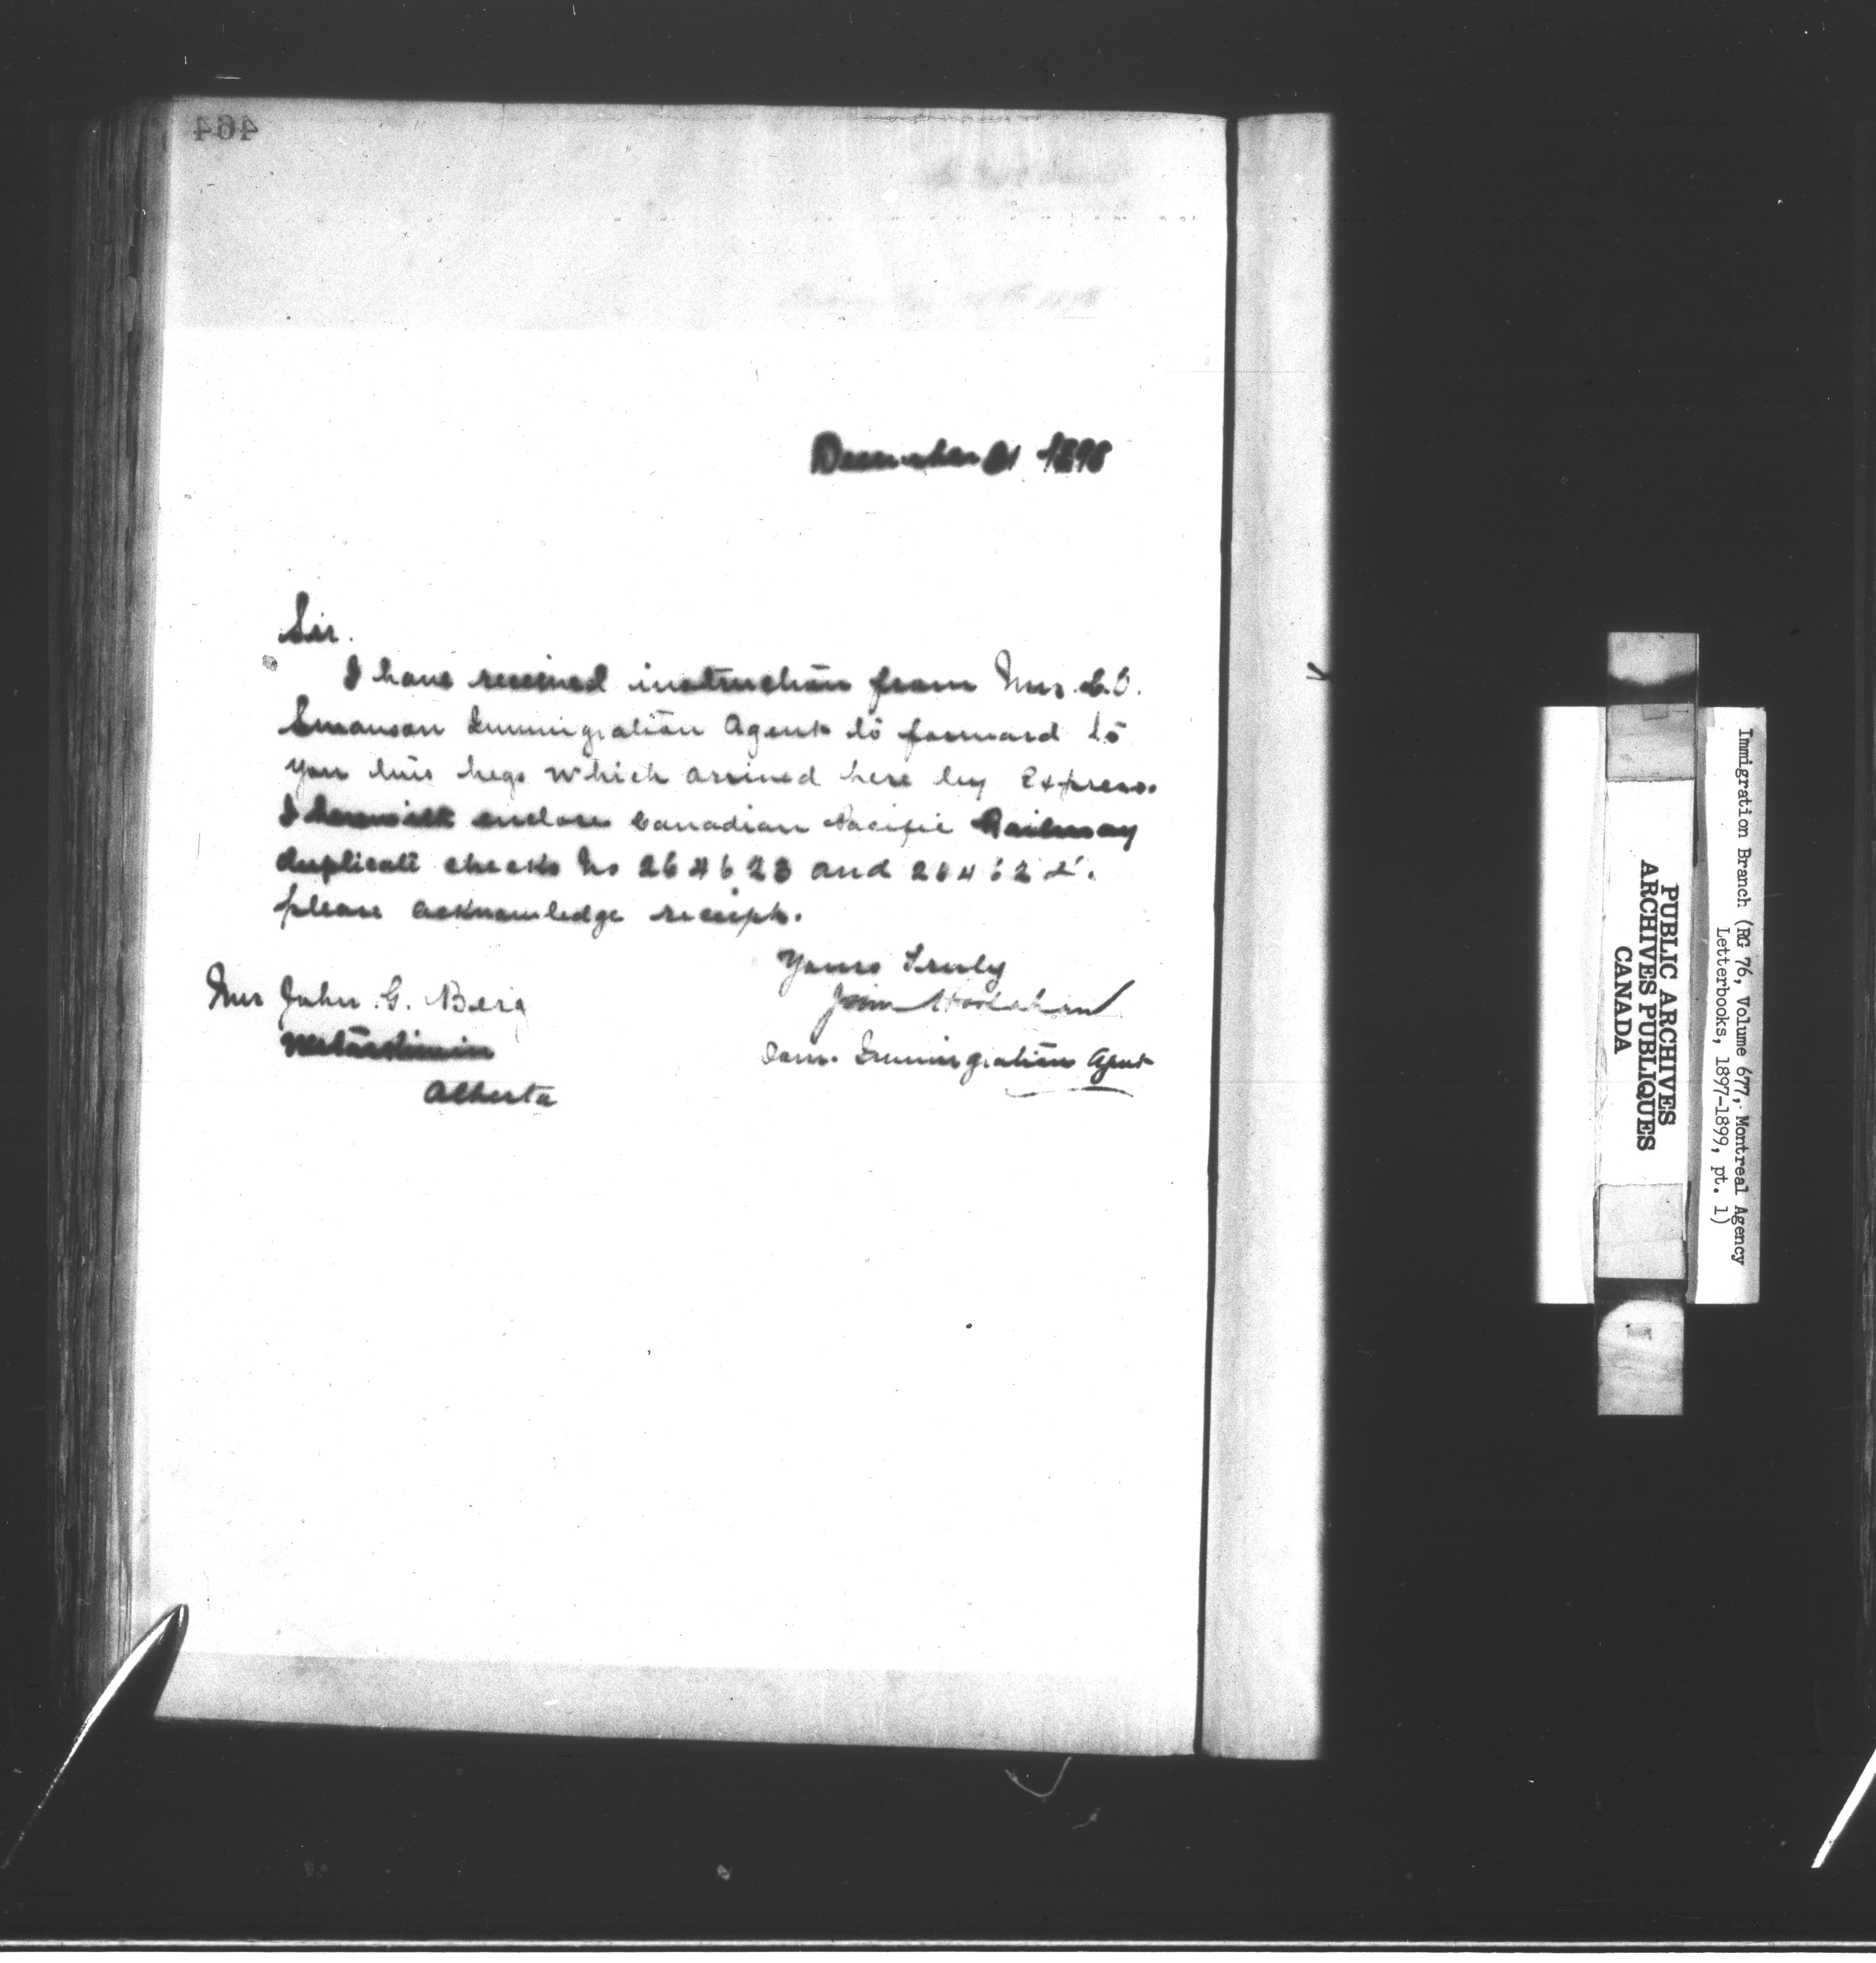 464
December 21 1898
Sir.
I have received instruction from Mr. C.O.
Swanson Immigration Agent to forward to
you two kegs which arrived here by Express.
I herewith enclose Canadian Pacific Railway
duplicate checks No 264623 and
please acknowledge receipt.
Yours Truly
John Hoolahan
Dom. Immigration Agent
Mr John G. Berg
Wetaskiwin
Alberta
Immigration Branch (RG 76, Volume 677, Montreal Agency
Letterbooks, 1897-1899, pt. 1)
PUBLIC ARCHIVES
ARCHIVES PUBLIQUES
CANADA